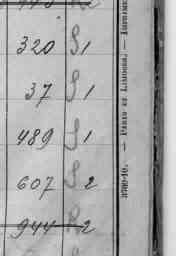 320 S 1
37 S 1
489 S 1
607 S 2
944 S 2
3799-10. — PARIS ET LIMOGES, — IMPRIME